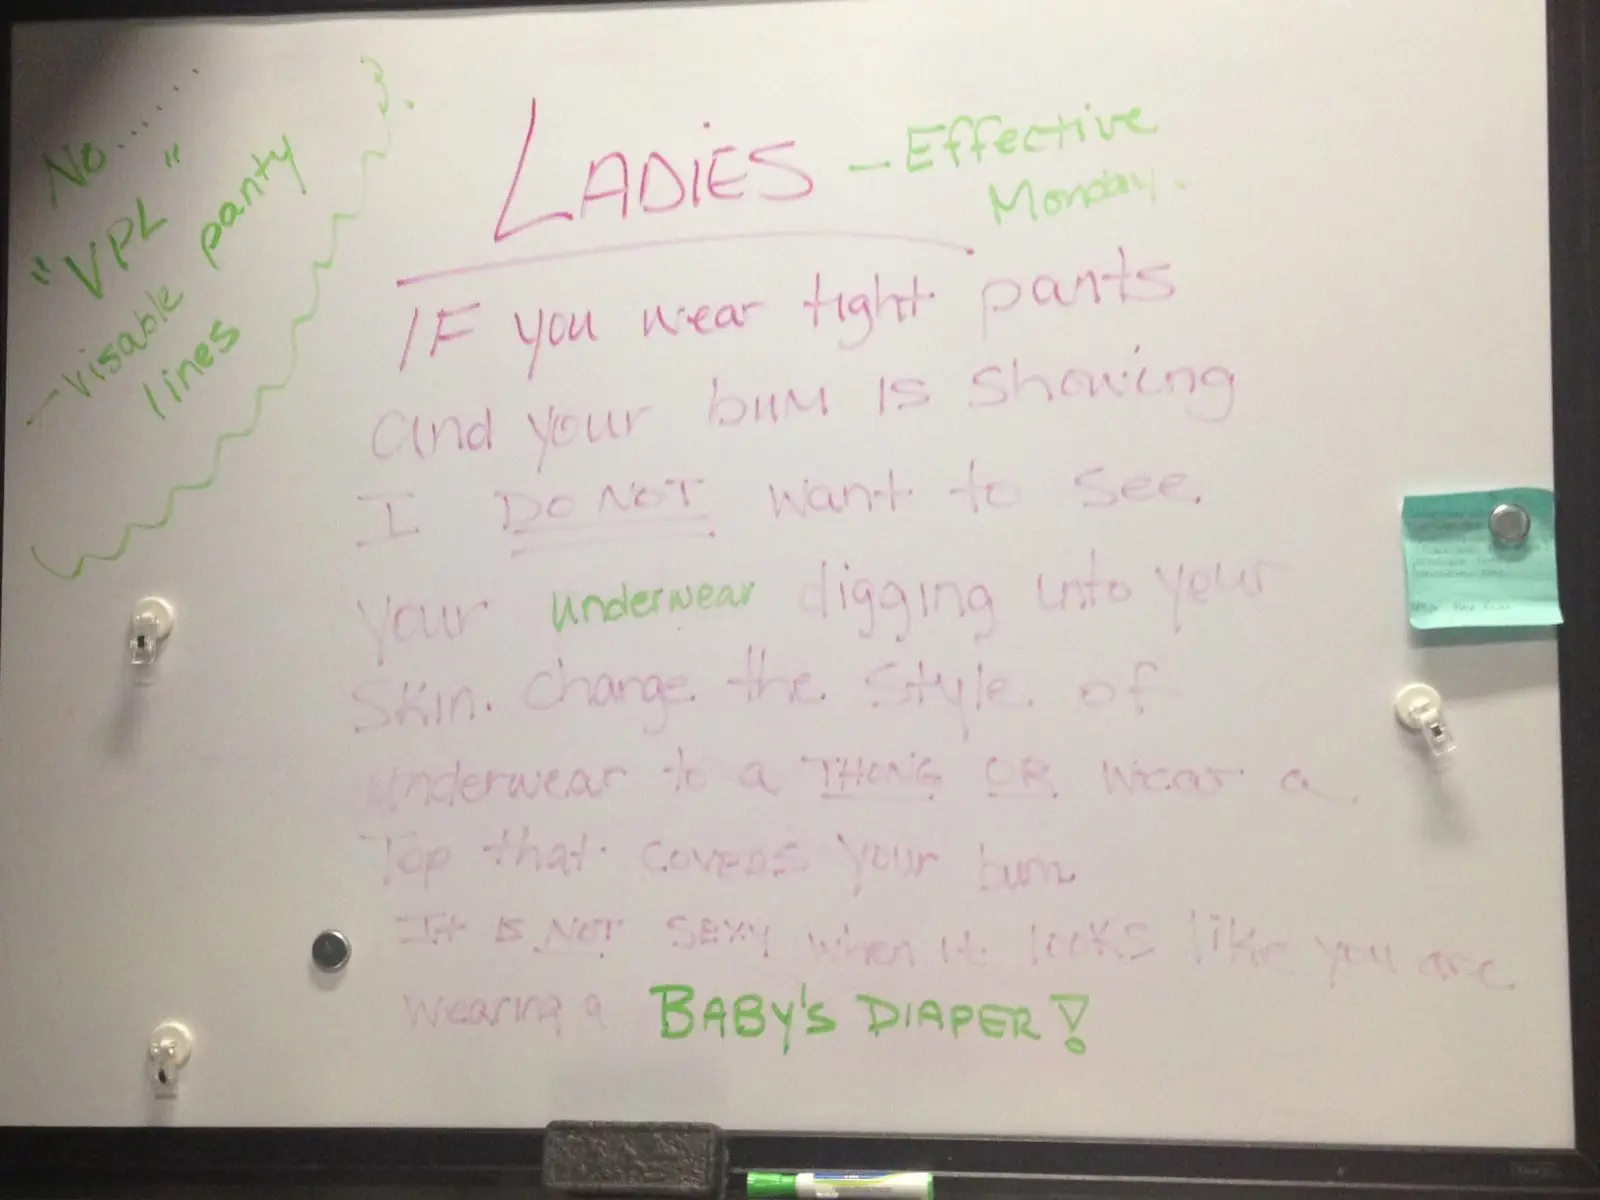 No......
"VPL"
- visable panty
lines
LADIES - Effective
Monday.
IF you wear tight pants
and your bum is showing
I DO NOT want to see
your underwear digging into your
skin. Change the style of
underwear to a THONG OR wear a
Top that covers your bum
It is NOT SEXY when it looks like you are
wearing a BABY'S DIAPER!